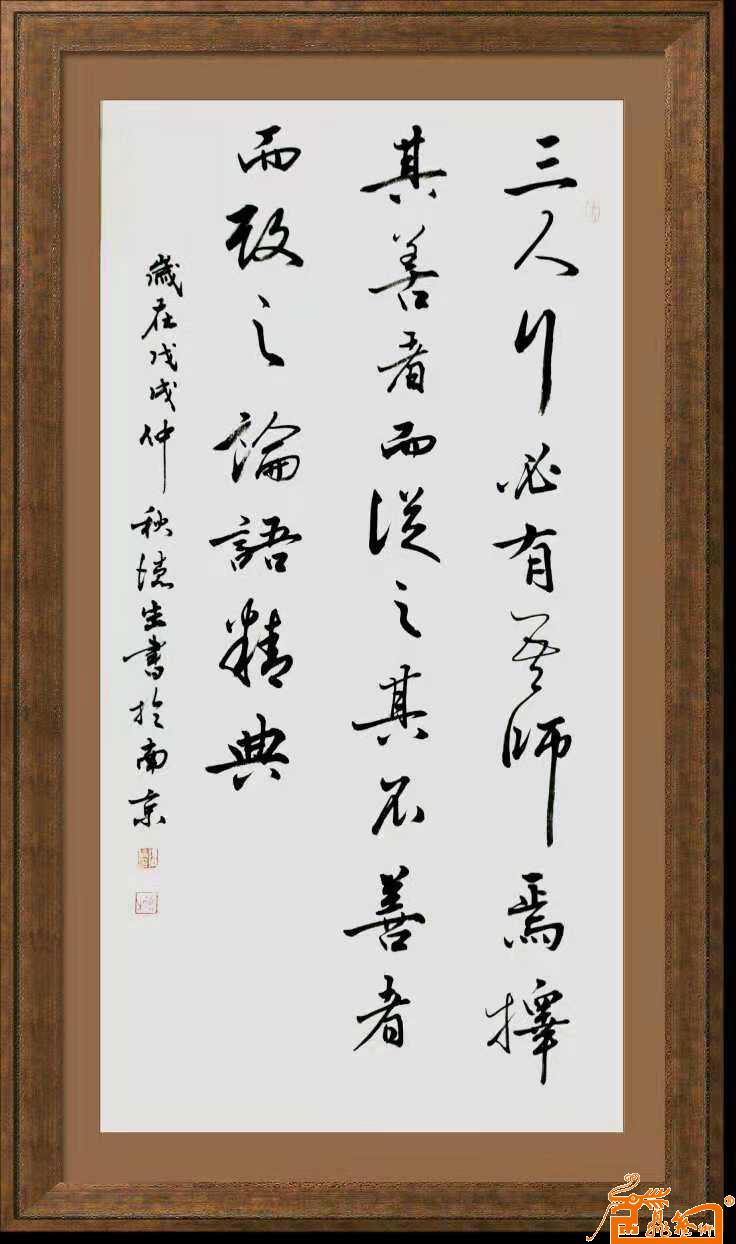 三人行必有吾師焉擇
其善者而從之其不善者
而改之論語精典
歲在戊戌仲秋德生書於南京